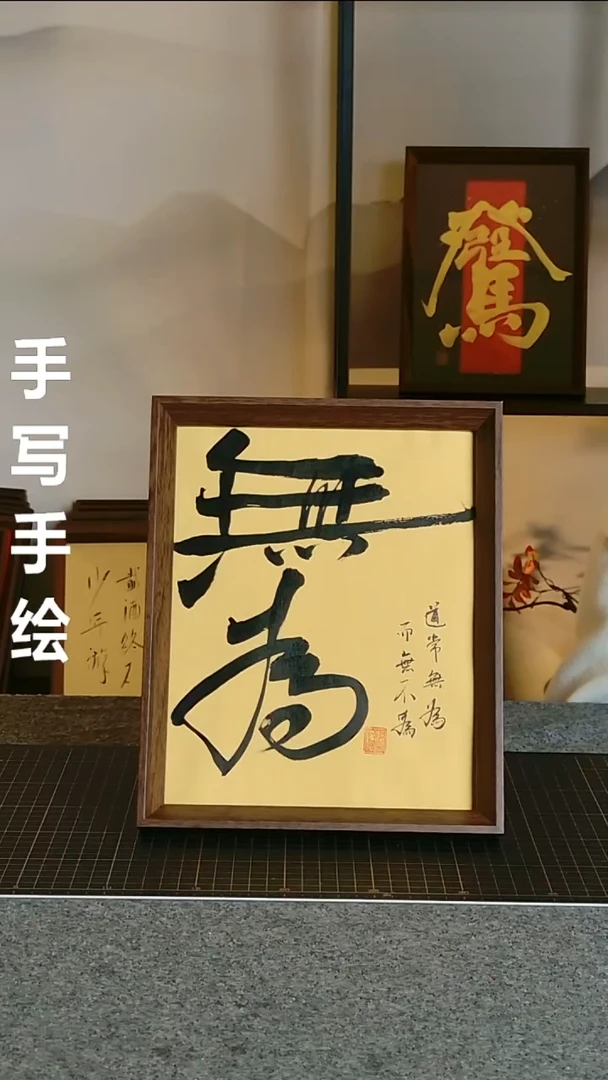 手写手绘
無為
道常無為
而無不為
載酒終不
少年游